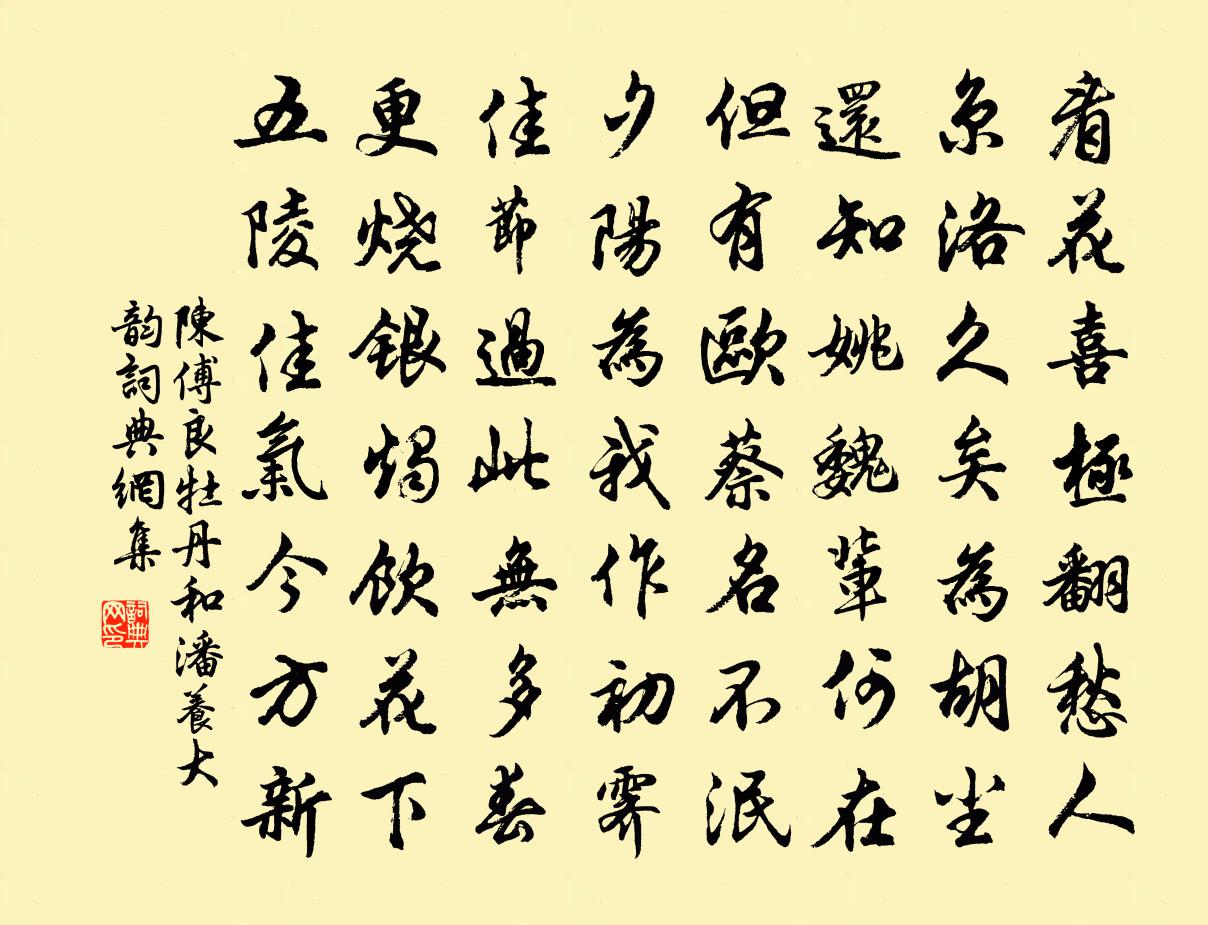 看花喜極翻愁人
京洛久矣為胡尘
還知姚魏輩何在
但有歐蔡名不泯
夕陽為我作初霽
佳節過此無多春
更烧銀燭飲花下
五陵佳氣今方新
陳傅良牡丹和潘養大
韵詞典網集
詞典
网印